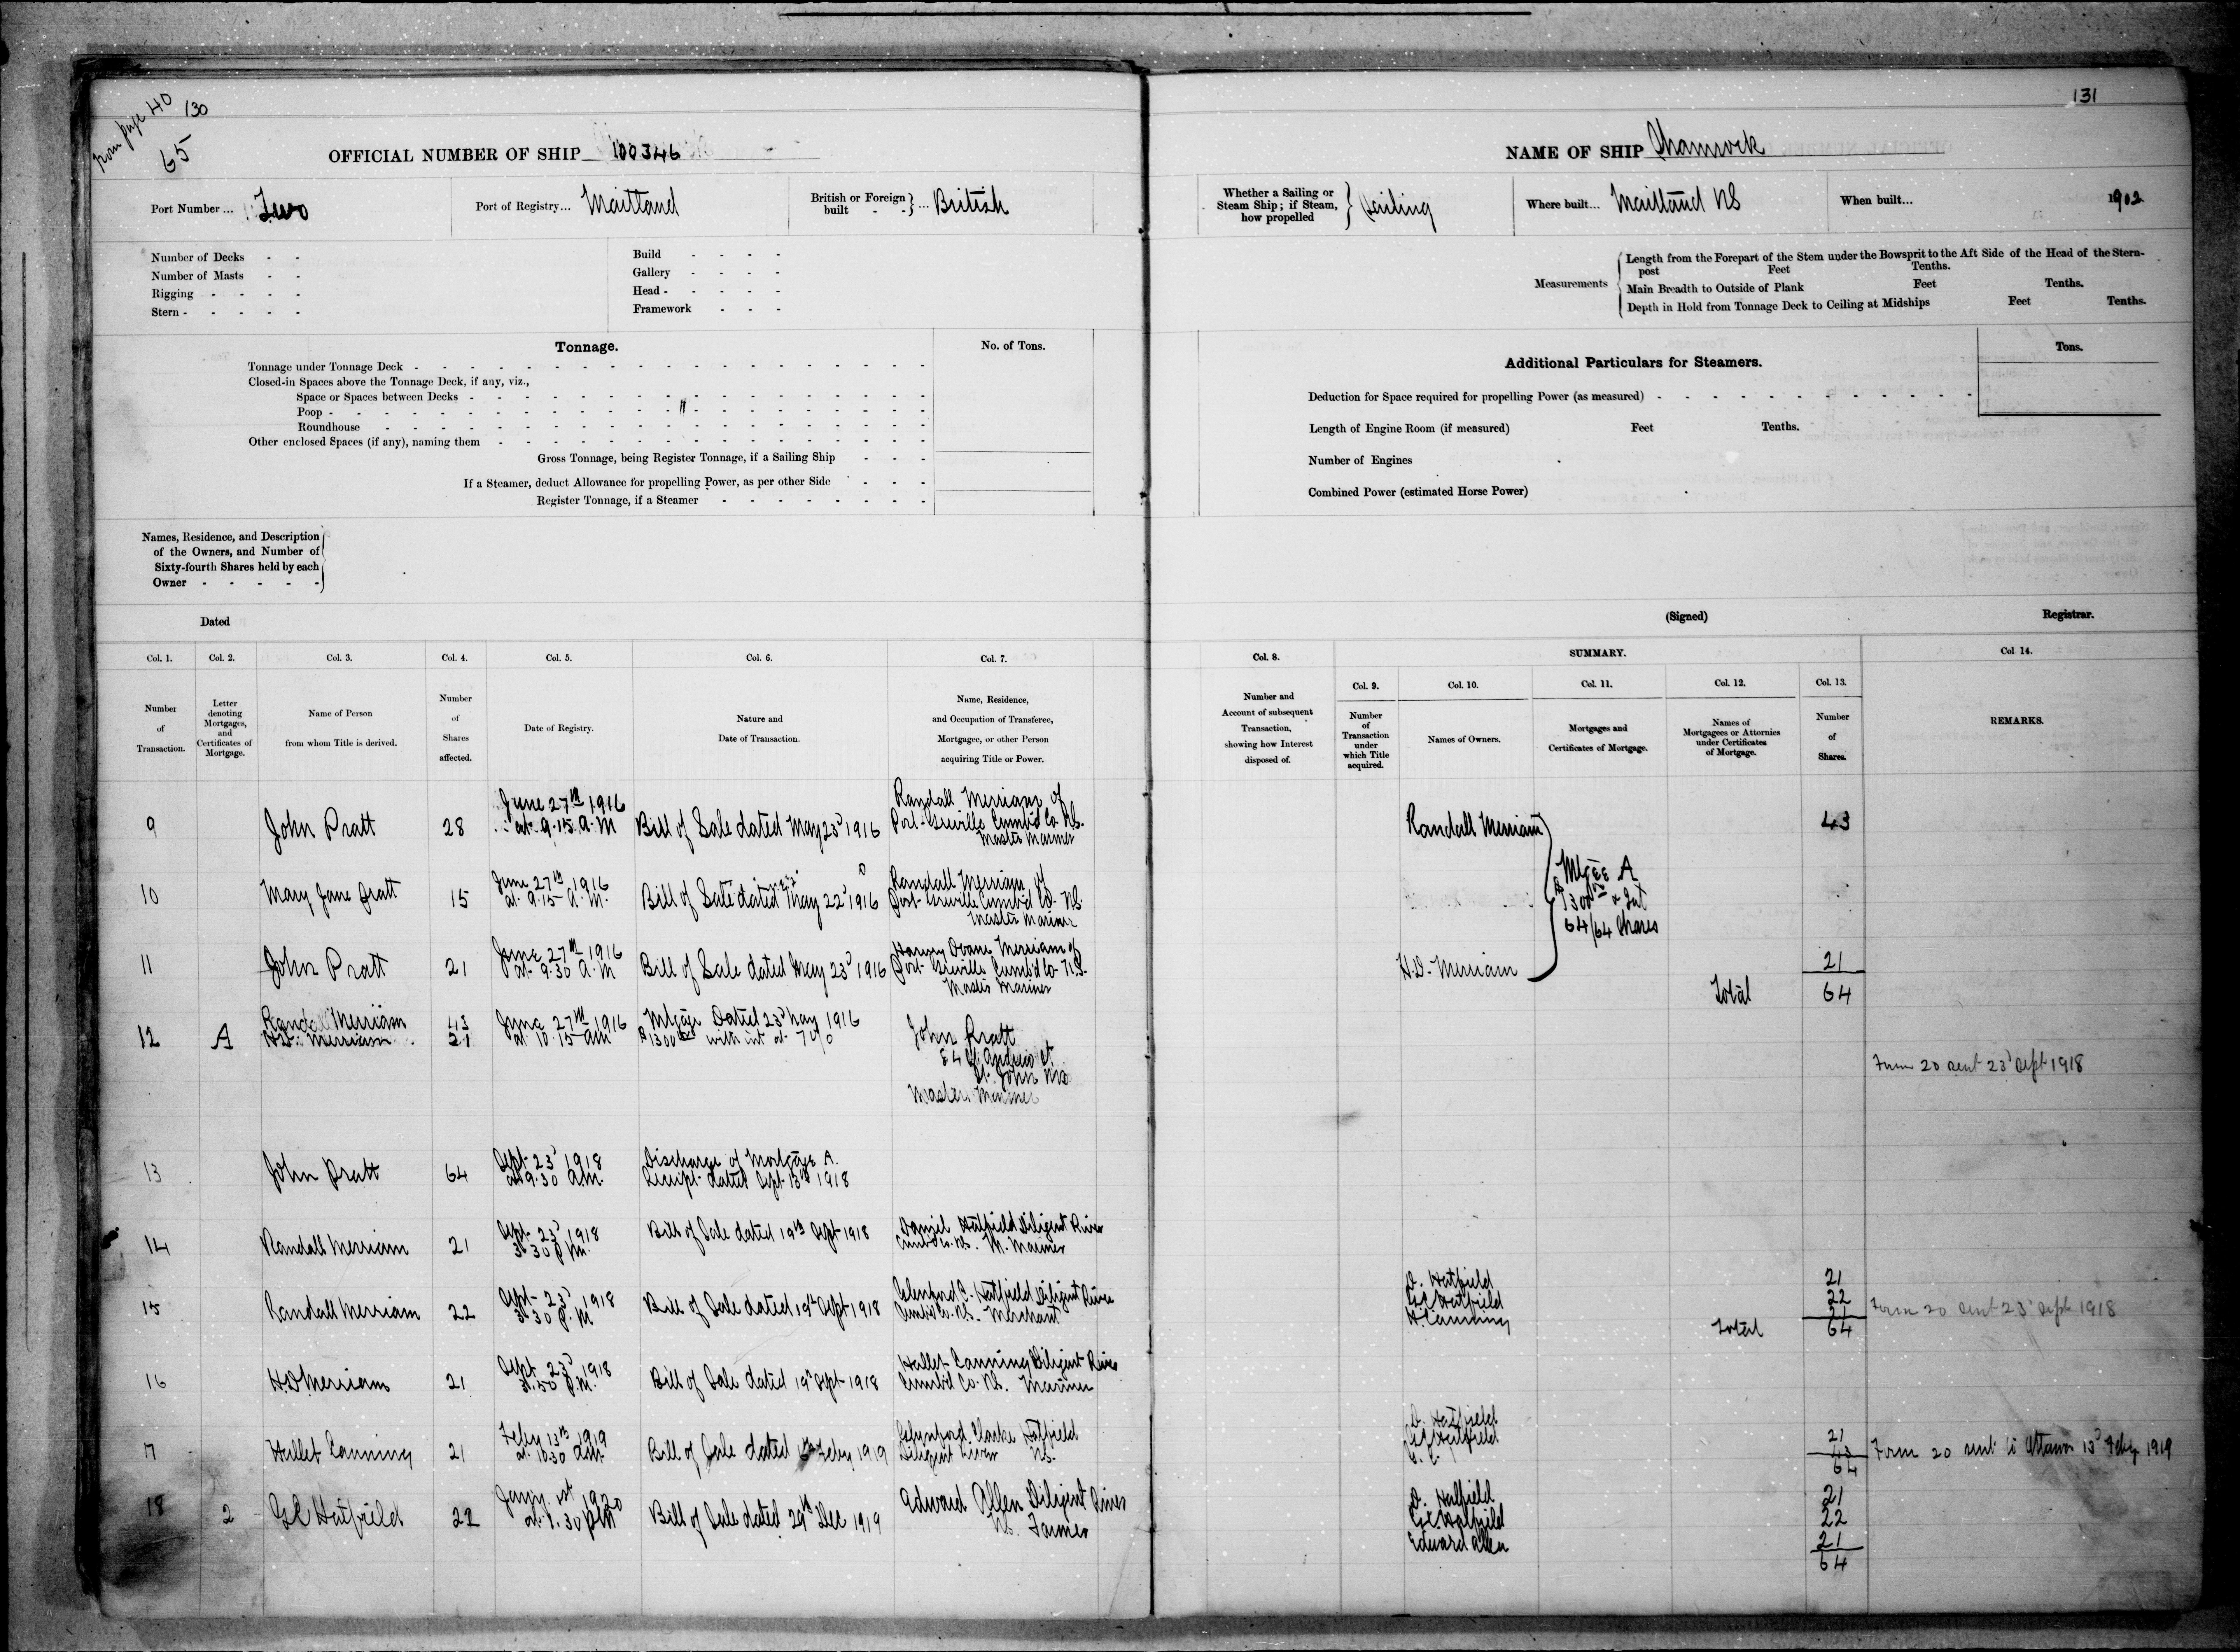 from page 40
130
65
OFFICIAL NUMBER OF SHIP 100346
Port Number... Two
Port of Registry... Maitland
British or Foreign built - - } ... British
Number of Decks - -
Number of Masts - -
Rigging - - - -
Stern - - - - -
Build - - - -
Gallery - - - -
Head - - - - -
Framework - - -
Tonnage.
No. of Tons.
Tonnage under Tonnage Deck
Closed-in Spaces above the Tonnage Deck, if any, viz.,
Space or Spaces between Decks
Poop
Roundhouse
Other enclosed Spaces (if any), naming them
Gross Tonnage, being Register Tonnage, if a Sailing Ship
If a Steamer, deduct Allowance for propelling Power, as per other Side
Register Tonnage, if a Steamer
Names, Residence, and Description
of the Owners, and Number of
Sixty-fourth Shares held by each
Owner
Dated
Col. 1. Col. 2. Col. 3. Col. 4. Col. 5. Col. 6. Col. 7.
Number of Transaction.
Letter denoting Mortgages, and Certificates of Mortgage.
Name of Person from whom Title is derived.
Number of Shares affected.
Date of Registry.
Nature and Date of Transaction.
Name, Residence, and Occupation of Transferee, Mortgagee, or other Person acquiring Title or Power.
9 John Pratt 28
June 27th 1916
at 9.15 A.M
Bill of Sale dated May 23d 1916
Randall Merriam of
Port Greville Cumb'd Co N.S.
Master Mariner
10 Mary Jane Pratt 15
June 27th 1916
at 9.15 A.M.
Bill of Sale dated May 22d 1916
Randall Merriam of
Port Greville Cumb'd Co. NS.
Master Mariner
11 John Pratt 21
June 27th 1916
at 9.30 A.M
Bill of Sale dated May 23d 1916
Merriam of
Port Greville Cumb'd Co N.S.
Master Mariner
12 A
Randall Merriam 43
H.D. Merriam 21
June 27th 1916
at 10.15 am
Mtgage Dated 23d May 1916
$1300 with int at 7%
John Pratt
St
St. John NB
Master Mariner
13 John Pratt 64
Sept 23d 1918
at 9.30 AM.
Discharge of Mortgage A.
Receipt dated Sept 13th 1918
14 Randall Merriam 21
Sept 23d 1918
3.30 P.M.
Bill of Sale dated 19th Sept 1918
Daniel Hatfield Diligent River
Cumb'd Co. NS. M. Mariner
15 Randall Merriam 22
Sept 23d 1918
3.30 P.M
Bill of Sale dated 19th Sept 1918
C. Hatfield Diligent River
Cumb'd Co. N.S. Merchant
16 H.D. Merriam 21
Sept 23d 1918
P.M.
Bill of Sale dated 19th Sept 1918
Hallet Canning Diligent River
Cumb'd Co. NS. Mariner
17 Hallet Canning 21
Feby 13th 1919
at 10.30 AM.
Bill of Sale dated Feby 1919
Clarke Hatfield
Diligent River NS.
18 2 G C Hatfield 22
Jany 1st 1920
at 1.30 PM
Bill of Sale dated 29th Dec 1919
Edward Allen Diligent River
NS. Farmer
131
NAME OF SHIP Shamrock
Whether a Sailing or Steam Ship; if Steam, how propelled } Sailing
Where built... Maitland NS
When built... 1902
Measurements
Length from the Forepart of the Stem under the Bowsprit to the Aft Side of the Head of the Stern-
post Feet Tenths.
Main Breadth to Outside of Plank Feet Tenths.
Depth in Hold from Tonnage Deck to Ceiling at Midships Feet Tenths.
Additional Particulars for Steamers.
Tons.
Deduction for Space required for propelling Power (as measured)
Length of Engine Room (if measured) Feet Tenths.
Number of Engines
Combined Power (estimated Horse Power)
(Signed) Registrar.
Col. 8.
SUMMARY.
Col. 9. Col. 10. Col. 11. Col. 12. Col. 13. Col. 14.
Number and Account of subsequent Transaction, showing how Interest disposed of.
Number of Transaction under which Title acquired.
Names of Owners.
Mortgages and Certificates of Mortgage.
Names of Mortgagees or Attornies under Certificates of Mortgage.
Number of Shares.
REMARKS.
Randall Merriam 43
Mtgee A
$1300 & Int
64/64 Shares
H.D. Merriam 21
Total 64
Form 20 sent 23d Sept 1918
D. Hatfield 21
GC Hatfield 22
H Canning 21
Total 64
Form 20 sent 23d Sept 1918
D. Hatfield 21
GC Hatfield 43
64
Form 20 sent to Ottawa 13d Feby 1919
D. Hatfield 21
G.C. Hatfield 22
Edward Allen 21
64